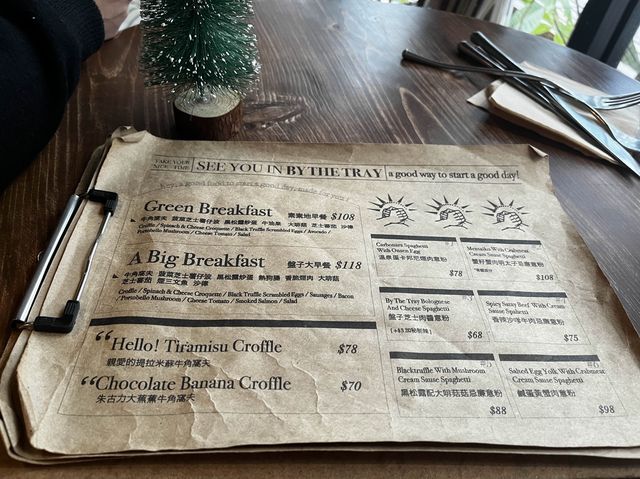 TAKE YOUR
NICE TIME
SEE YOU IN BY THE TRAY
a good way to start a good day!
Hey, a good food to start a good day, made for you !
Green Breakfast 素素地早餐 $108
牛角窩夫 菠菜芝士薯仔波 黑松露炒蛋 牛油果 大啡菇 芝士番茄 沙律
Croffle / Spinach & Cheese Croquette / Black Truffle Scrambled Eggs / Avocado /
Portobello Mushroom / Cheese Tomato / Salad
A Big Breakfast 盤子大早餐 $118
牛角窩夫 菠菜芝士薯仔波 黑松露炒蛋 熱狗腸 香脆煙肉 大啡菇
芝士番茄 煙三文魚 沙律
Croffle / Spinach & Cheese Croquette / Black Truffle Scrambled Eggs / Sausages / Bacon
/ Portobello Mushroom / Cheese Tomato / Smoked Salmon / Salad
“Hello! Tiramisu Croffle $78
親愛的提拉米蘇牛角窩夫
“Chocolate Banana Croffle $70
朱古力大蕉蕉牛角窩夫
Carbonara Spaghetti
With Onsen Egg
溫泉蛋卡邦尼煙肉意粉
$78
Mentaiko With Crabmeat
Cream Sause Spaghetti
蟹籽蟹肉明太子忌廉意粉
$108
By The Tray Bolognese
And Cheese Spaghetti
盤子芝士肉醬意粉
[+$3加秘制辣]
$68
Spicy Satay Beef With Cream
Sause Spaghetti
香辣沙嗲牛肉忌廉意粉
$75
#5
Blacktruffle With Mushroom
Cream Sause Spaghetti
黑松露配大啡菇菇忌廉意粉
$88
#6
Salted Egg Yolk With Crabmeat
Cream Sause Spaghetti
鹹蛋黃蟹肉意粉
$98